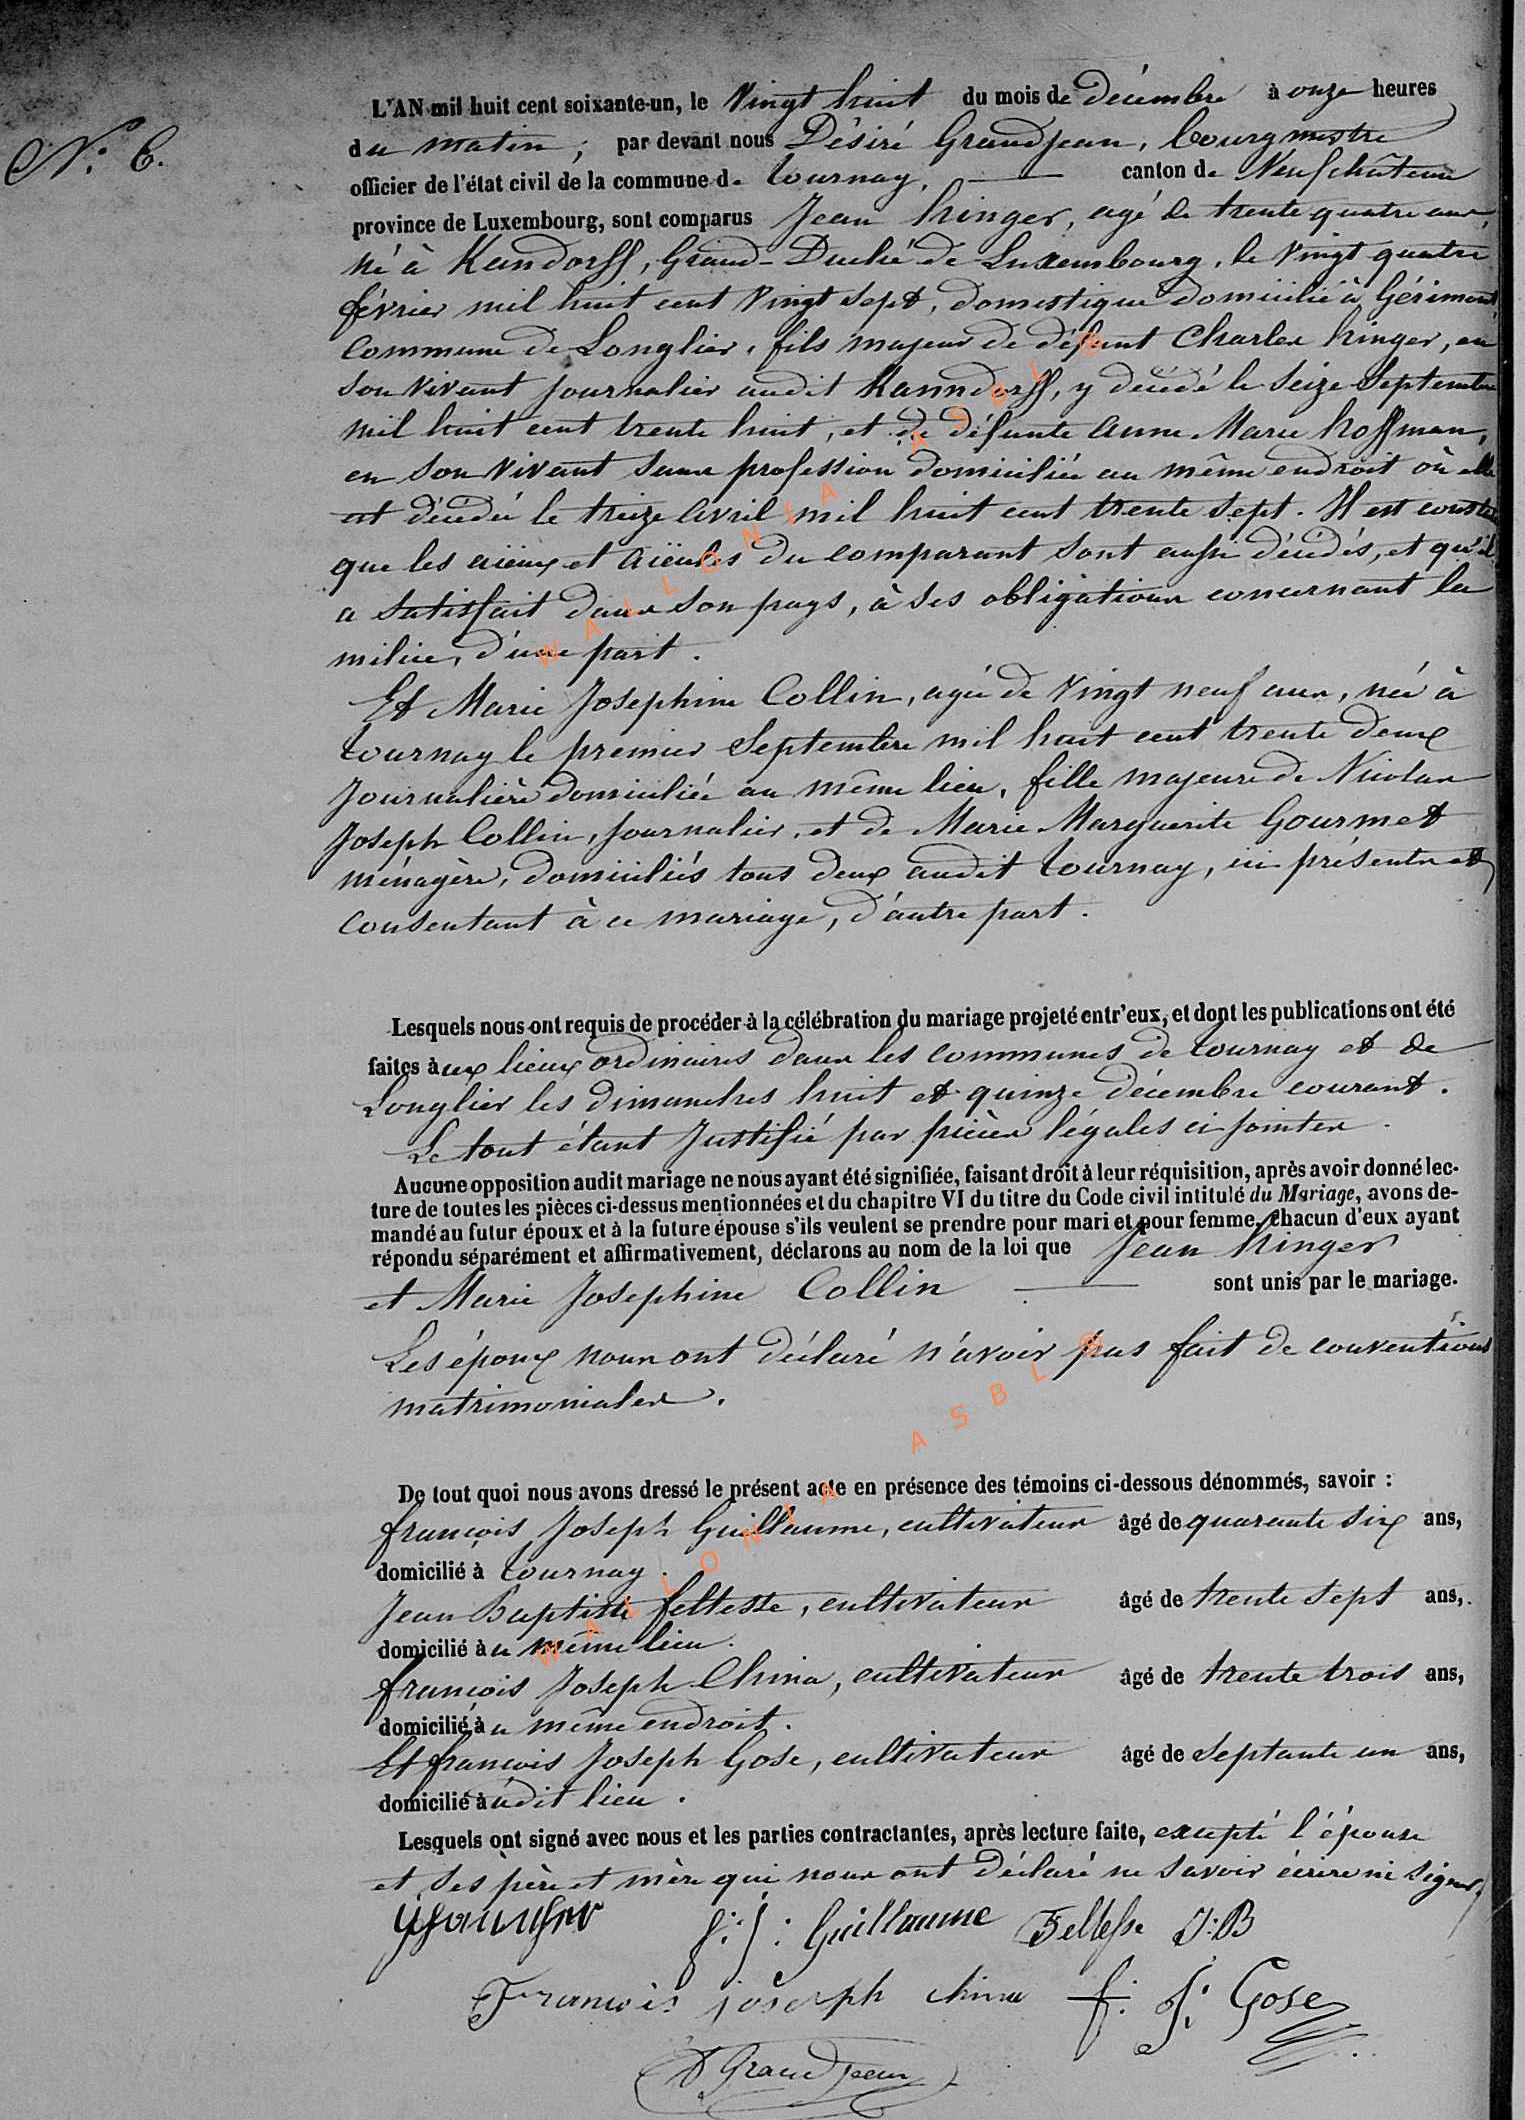 L'AN mil huit cent soixante-un, le Vingt huit du mois de décembre à onze heures
N.° 6.
du matin ; par devant nous Désiré Grandjean, bourgmestre
officier de l'état civil de la commune de tournay, canton de Neufchâteau
province de Luxembourg, sont comparus Jean hinger, agé de trente quatre ans,
né à Kandorff, Grand-Duché de Luxembourg, le Vingt quatre
février mil huit cent Vingt sept, domestique domicilié à Gérimont
commune de Longlier, fils majeur de défunt Charles hinger, en
son vivant journalier audit Kanndorff, y décédé le seize Septembre
mil huit cent trente huit, et de défunte anne Marie hoffman,
en son vivant sans profession domiciliée au même endroit où elle
est décédée le treize avril mil huit cent trente sept. Il est constaté
que les aïeux et aïeules du comparant sont aussi décédés, et qu'il
a satisfait dans son pays, à ses obligations concernant la
milice, d'une part.
Et Marie Josephine Collin, agée de Vingt neuf ans, née à
tournay le premier Septembre mil huit cent trente deux
Journalière domiciliée au même lieu, fille majeure de Nicolas
Joseph Collin, journalier, et de Marie Marguerite Gourmet
ménagère, domiciliés tous deux audit tournay, ici présents et
consentant à ce mariage, d'autre part.
Lesquels nous ont requis de procéder à la célébration du mariage projeté entr'eux, et dont les publications ont été
faites aux lieux ordinaires dans les communes de tournay et de
Longlier les dimanches huit et quinze décembre courant.
Le tout étant Justifié par pièces légales ci jointes.
Aucune opposition audit mariage ne nous ayant été signifiée, faisant droit à leur réquisition, après avoir donné lec-
ture de toutes les pièces ci-dessus mentionnées et du chapitre VI du titre du Code civil intitulé du Mariage, avons de-
mandé au futur époux et à la future épouse s'ils veulent se prendre pour mari et pour femme, chacun d'eux ayant
répondu séparément et affirmativement, déclarons au nom de la loi que Jean hinger
et Marie Josephine Collin sont unis par le mariage.
Les époux nous ont déclaré n'avoir pas fait de conventions
matrimoniales.
De tout quoi nous avons dressé le présent acte en présence des témoins ci-dessous dénommés, savoir :
françois Joseph Guillaume, cultivateur âgé de quarante six ans,
domicilié à tournay.
Jean Baptiste feltesse, cultivateur âgé de trente sept ans,
domicilié au même lieu.
françois Joseph China, cultivateur âgé de trente trois ans,
domicilié au même endroit.
Et françois Joseph Gose, cultivateur âgé de septante un ans,
domicilié audit lieu.
Lesquels ont signé avec nous et les parties contractantes, après lecture faite, excepté l'épouse
et ses père et mère qui nous ont déclaré ne savoir écrire ni signer.
f: J: Guillaume Feltesse J:B
François joseph china f: J: Gose
D Grandjean
WALLONIA ASBL ®
WALLONIA ASBL ®